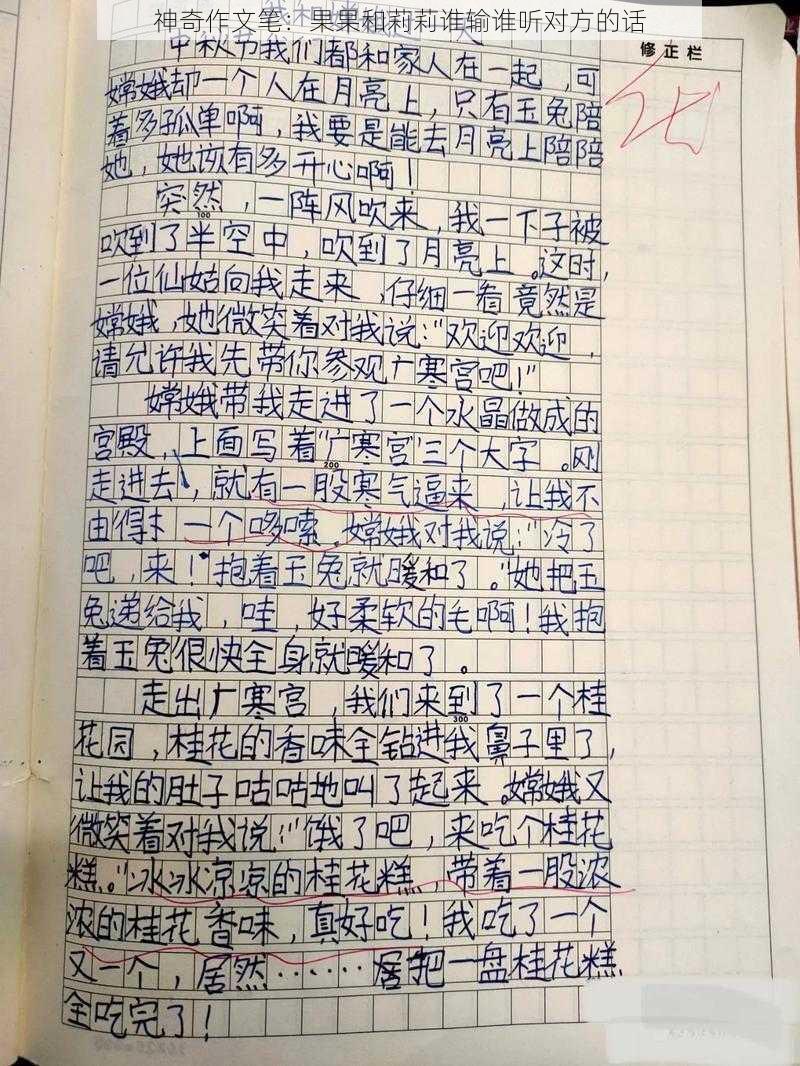 神奇作文笔：果果和莉莉谁输谁听对方的话
修正栏
中秋节我们都和家人在一起，可
嫦娥却一个人在月亮上，只有玉兔陪
着多孤单啊，我要是能去月亮上陪陪
她，她该有多开心啊！
突然，一阵风吹来，我一下子被
100
吹到了半空中，吹到了月亮上。这时，
一位仙姑向我走来，仔细一看竟然是
嫦娥，她微笑着对我说："欢迎欢迎，
请允许我先带你参观广寒宫吧！"
嫦娥带我走进了一个水晶做成的
宫殿，上面写着"广寒宫"三个大字。刚
200
走进去，就有一股寒气逼来，让我不
由得打一个哆嗦。嫦娥对我说："冷了
吧，来！抱着玉兔就暖和了。"她把玉
兔递给我，哇，好柔软的毛啊！我抱
着玉兔很快全身就暖和了。
走出广寒宫，我们来到了一个桂
300
花园，桂花的香味全钻进我鼻子里了，
让我的肚子咕咕地叫了起来。嫦娥又
微笑着对我说："饿了吧，来吃个桂花
糕。"冰冰凉凉的桂花糕，带着一股浓
浓的桂花香味，真好吃！我吃了一个
又一个，居然……居把一盘桂花糕
全吃完了！